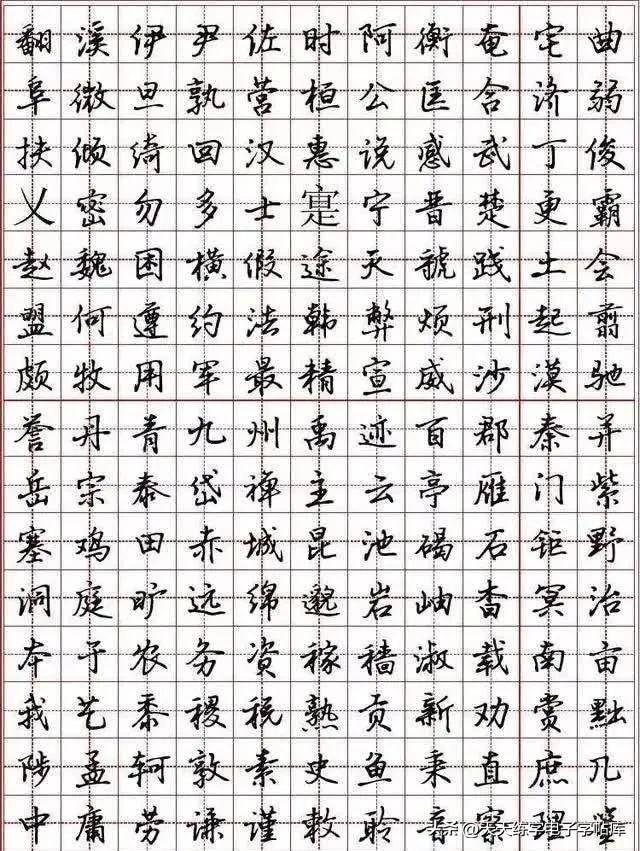 翻溪伊尹佐时阿衡奄宅曲
阜微旦孰营桓公匡合济弱
扶倾绮回汉惠说感武丁俊
乂密勿多士寔宁晋楚更霸
赵魏困横假途灭虢践土会
盟何遵约法韩弊烦刑起翦
颇牧用军最精宣威沙漠驰
誉丹青九州禹迹百郡秦并
岳宗泰岱禅主云亭雁门紫
塞鸡田赤城昆池碣石钜野
洞庭旷远绵邈岩岫杳冥治
本于农务资稼穑淑载南亩
我艺黍稷税熟贡新劝赏黜
陟孟轲敦素史鱼秉直庶几
中庸劳谦谨敕聆音察理鉴
头条 @天天练字电子字帖库